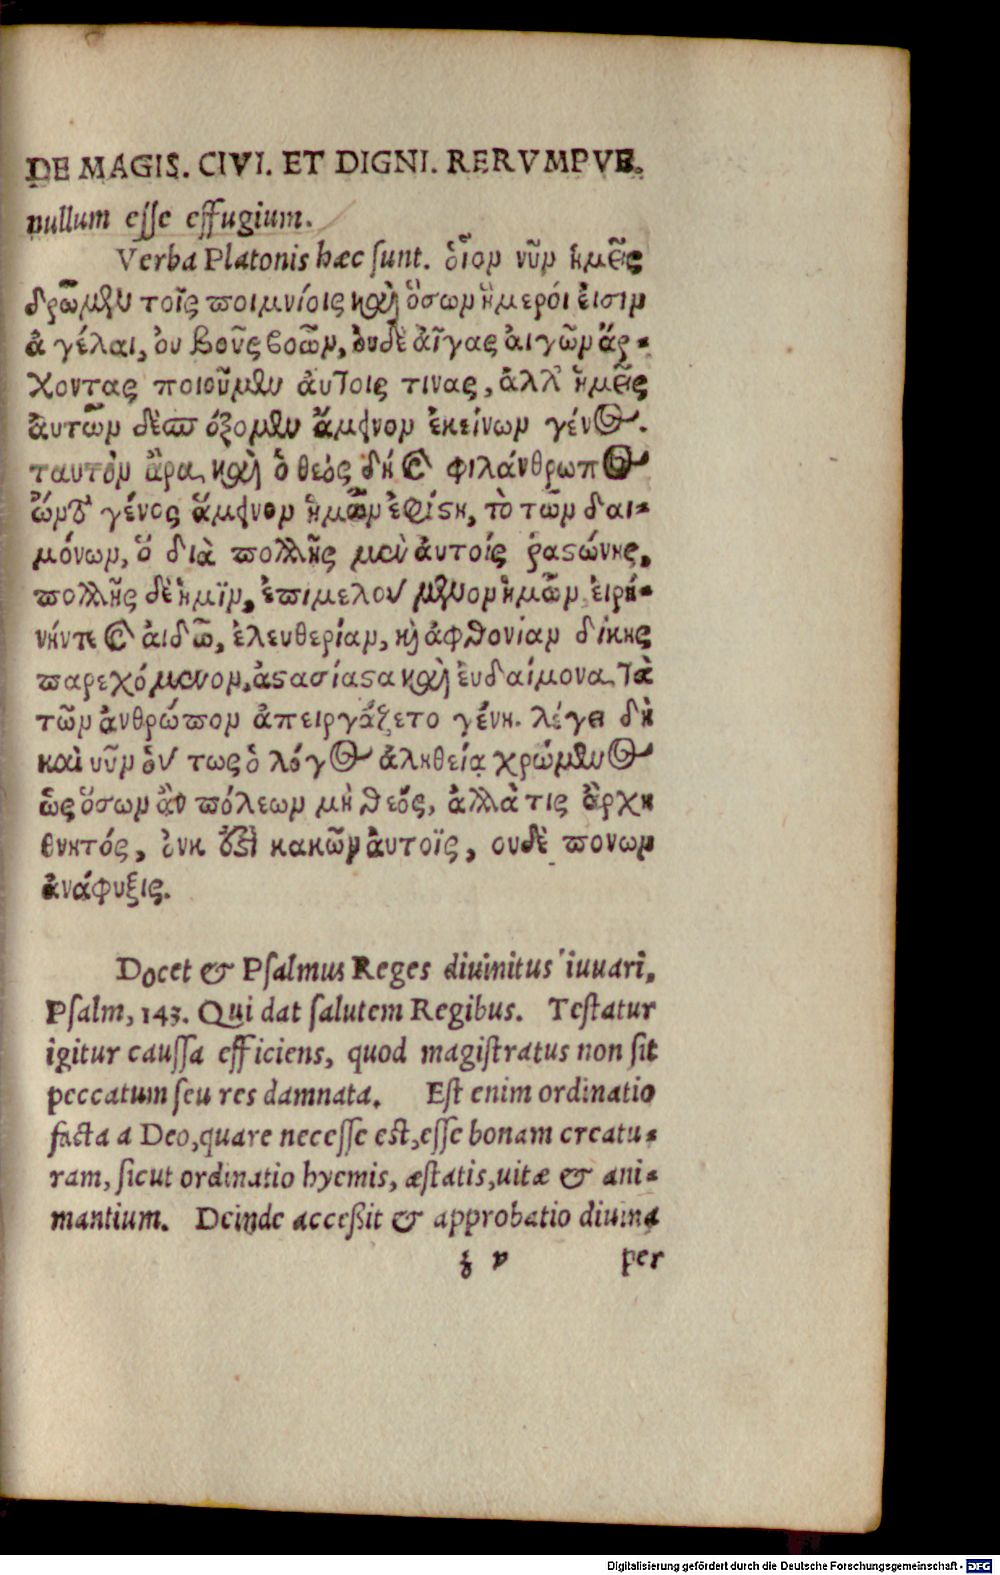 DE MAGIS. CIVI. ET DIGNI. RERVMPVB.
nullum esse effugium.
Verba Platonis hæc sunt. ὁῖον νῦν ἡμεῖς
δρῶμεν τοῖς ποιμνίοις καὶ ὅσων ἥμερόι ἐισιν
ἀ γέλαι, ὀυ βοῦς βοῶν, ὀυδὲ ἀῖγας ἀιγῶν ἄρ-
χοντας ποιοῦμεν ἀυτοις τινας, ἀλλ' ἡμεῖς
ἀυτῶν δεσπόζομεν ἄμεινον ἐκείνων γένος.
ταυτὸν ἄρα καὶ ὁ θεὸς δὴ καὶ φιλάνθρωπος
ὢν τὸ γένος ἄμεινον ἡμῶν ἐφίστη, τὸ τῶν δαι-
μόνων, ὃ διὰ πολλῆς μεν ἀυτοίς ῥαστώνης,
πολλῆς δὲ ἡμῖν, ἐπιμελούμενον ἡμῶν, ἐιρή-
νήντε καὶ ἀιδῶ, ἐλευθερίαν, κὶ ἀφθονίαν δίκης
παρεχόμενον, ἀστασίαστα καὶ ἐυδαίμονα τὰ
τῶν ἀνθρώπον ἀπειργάζετο γένη. λέγει δὴ
καὶ νῦν ὁν τως ὁ λόγος ἀληθεία χρώμενος
ὡς ὅσων ἂν πόλεων μὴ θεὸς, ἀλλὰ τις ἄρχη
θνητός, ὀυκ ἔστι κακῶν ἀυτοῖς, ουδὲ πονων
ἀνάφυξις.
Docet & Psalmus Reges diuinitus iuuari,
Psalm, 143. Qui dat salutem Regibus. Testatur
igitur caussa efficiens, quod magistratus non sit
peccatum seu res damnata. Est enim ordinatio
facta a Deo, quare necesse est, esse bonam creatu-
ram, sicut ordinatio hyemis, æstatis, uitæ & ani-
mantium. Deinde acceßit & approbatio diuina
per
Digitalisierung gefördert durch die Deutsche Forschungsgemeinschaft - DFG